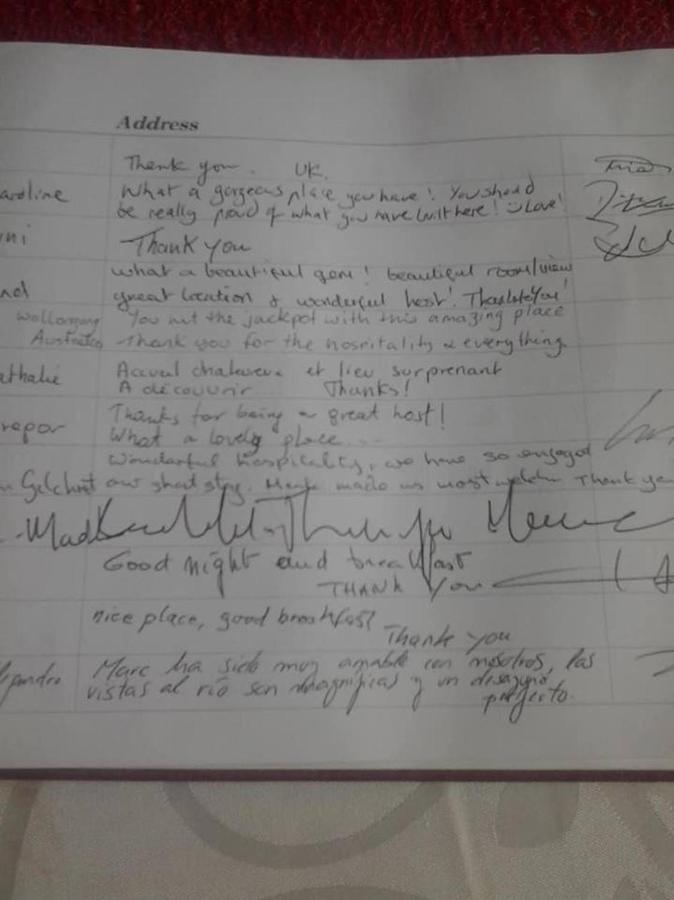 Address
Thank you. UK.
aroline What a gorgeous place you have! You should
be really proud of what you have built here! Love!
ni Thank you
what a beautiful gem! beautiful room/view
nd great location & wonderful host! Thank You!
Wollongong You hit the jackpot with this amazing place
Australia Thank you for the hospitality & everything
athalie Accueil chaleureux et lieu surprenant
A découvrir Thanks!
repor Thanks for being a great host!
What a lovely place...
Wonderful hospitality, we have so enjoyed
our short stay. made us most welcome Thank you
Good night and breakfast
THANK You
nice place, good breakfast
Thank you
Marc ha sido muy amable con nosotros, las
vistas al río son magníficas y un desayuno
perfecto.